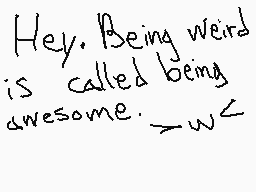 Hey. Being weird
is called being
awesome. >w<